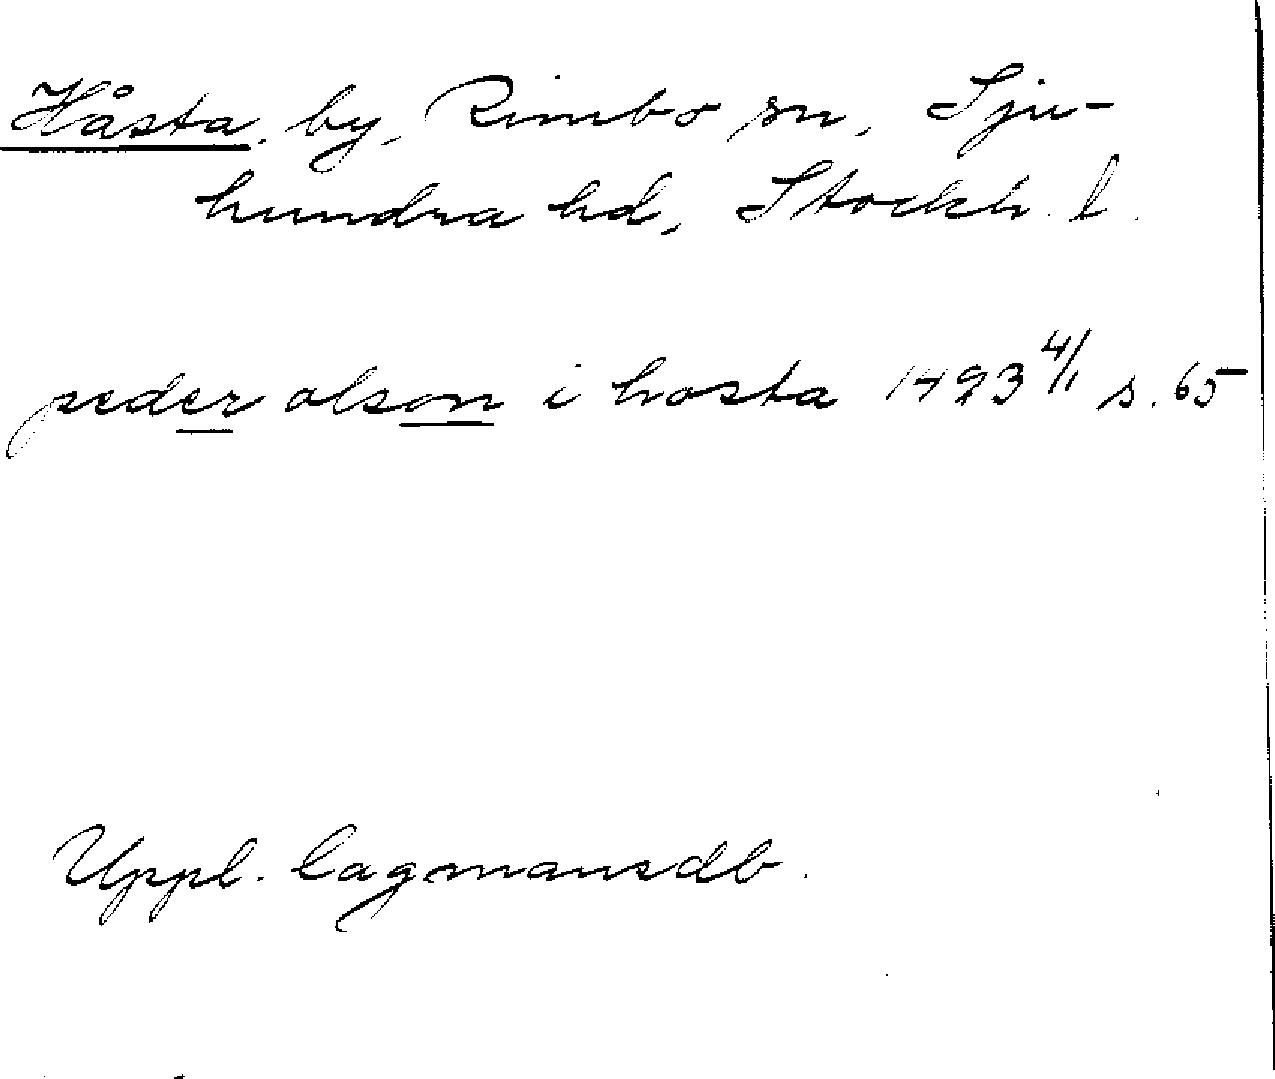 Håsta, by, Rimbo sn, Sju-
hundra hd, Stockh. l.
peder olson i hosta 1493 4/1 s. 65
Uppl. lagmansdb.